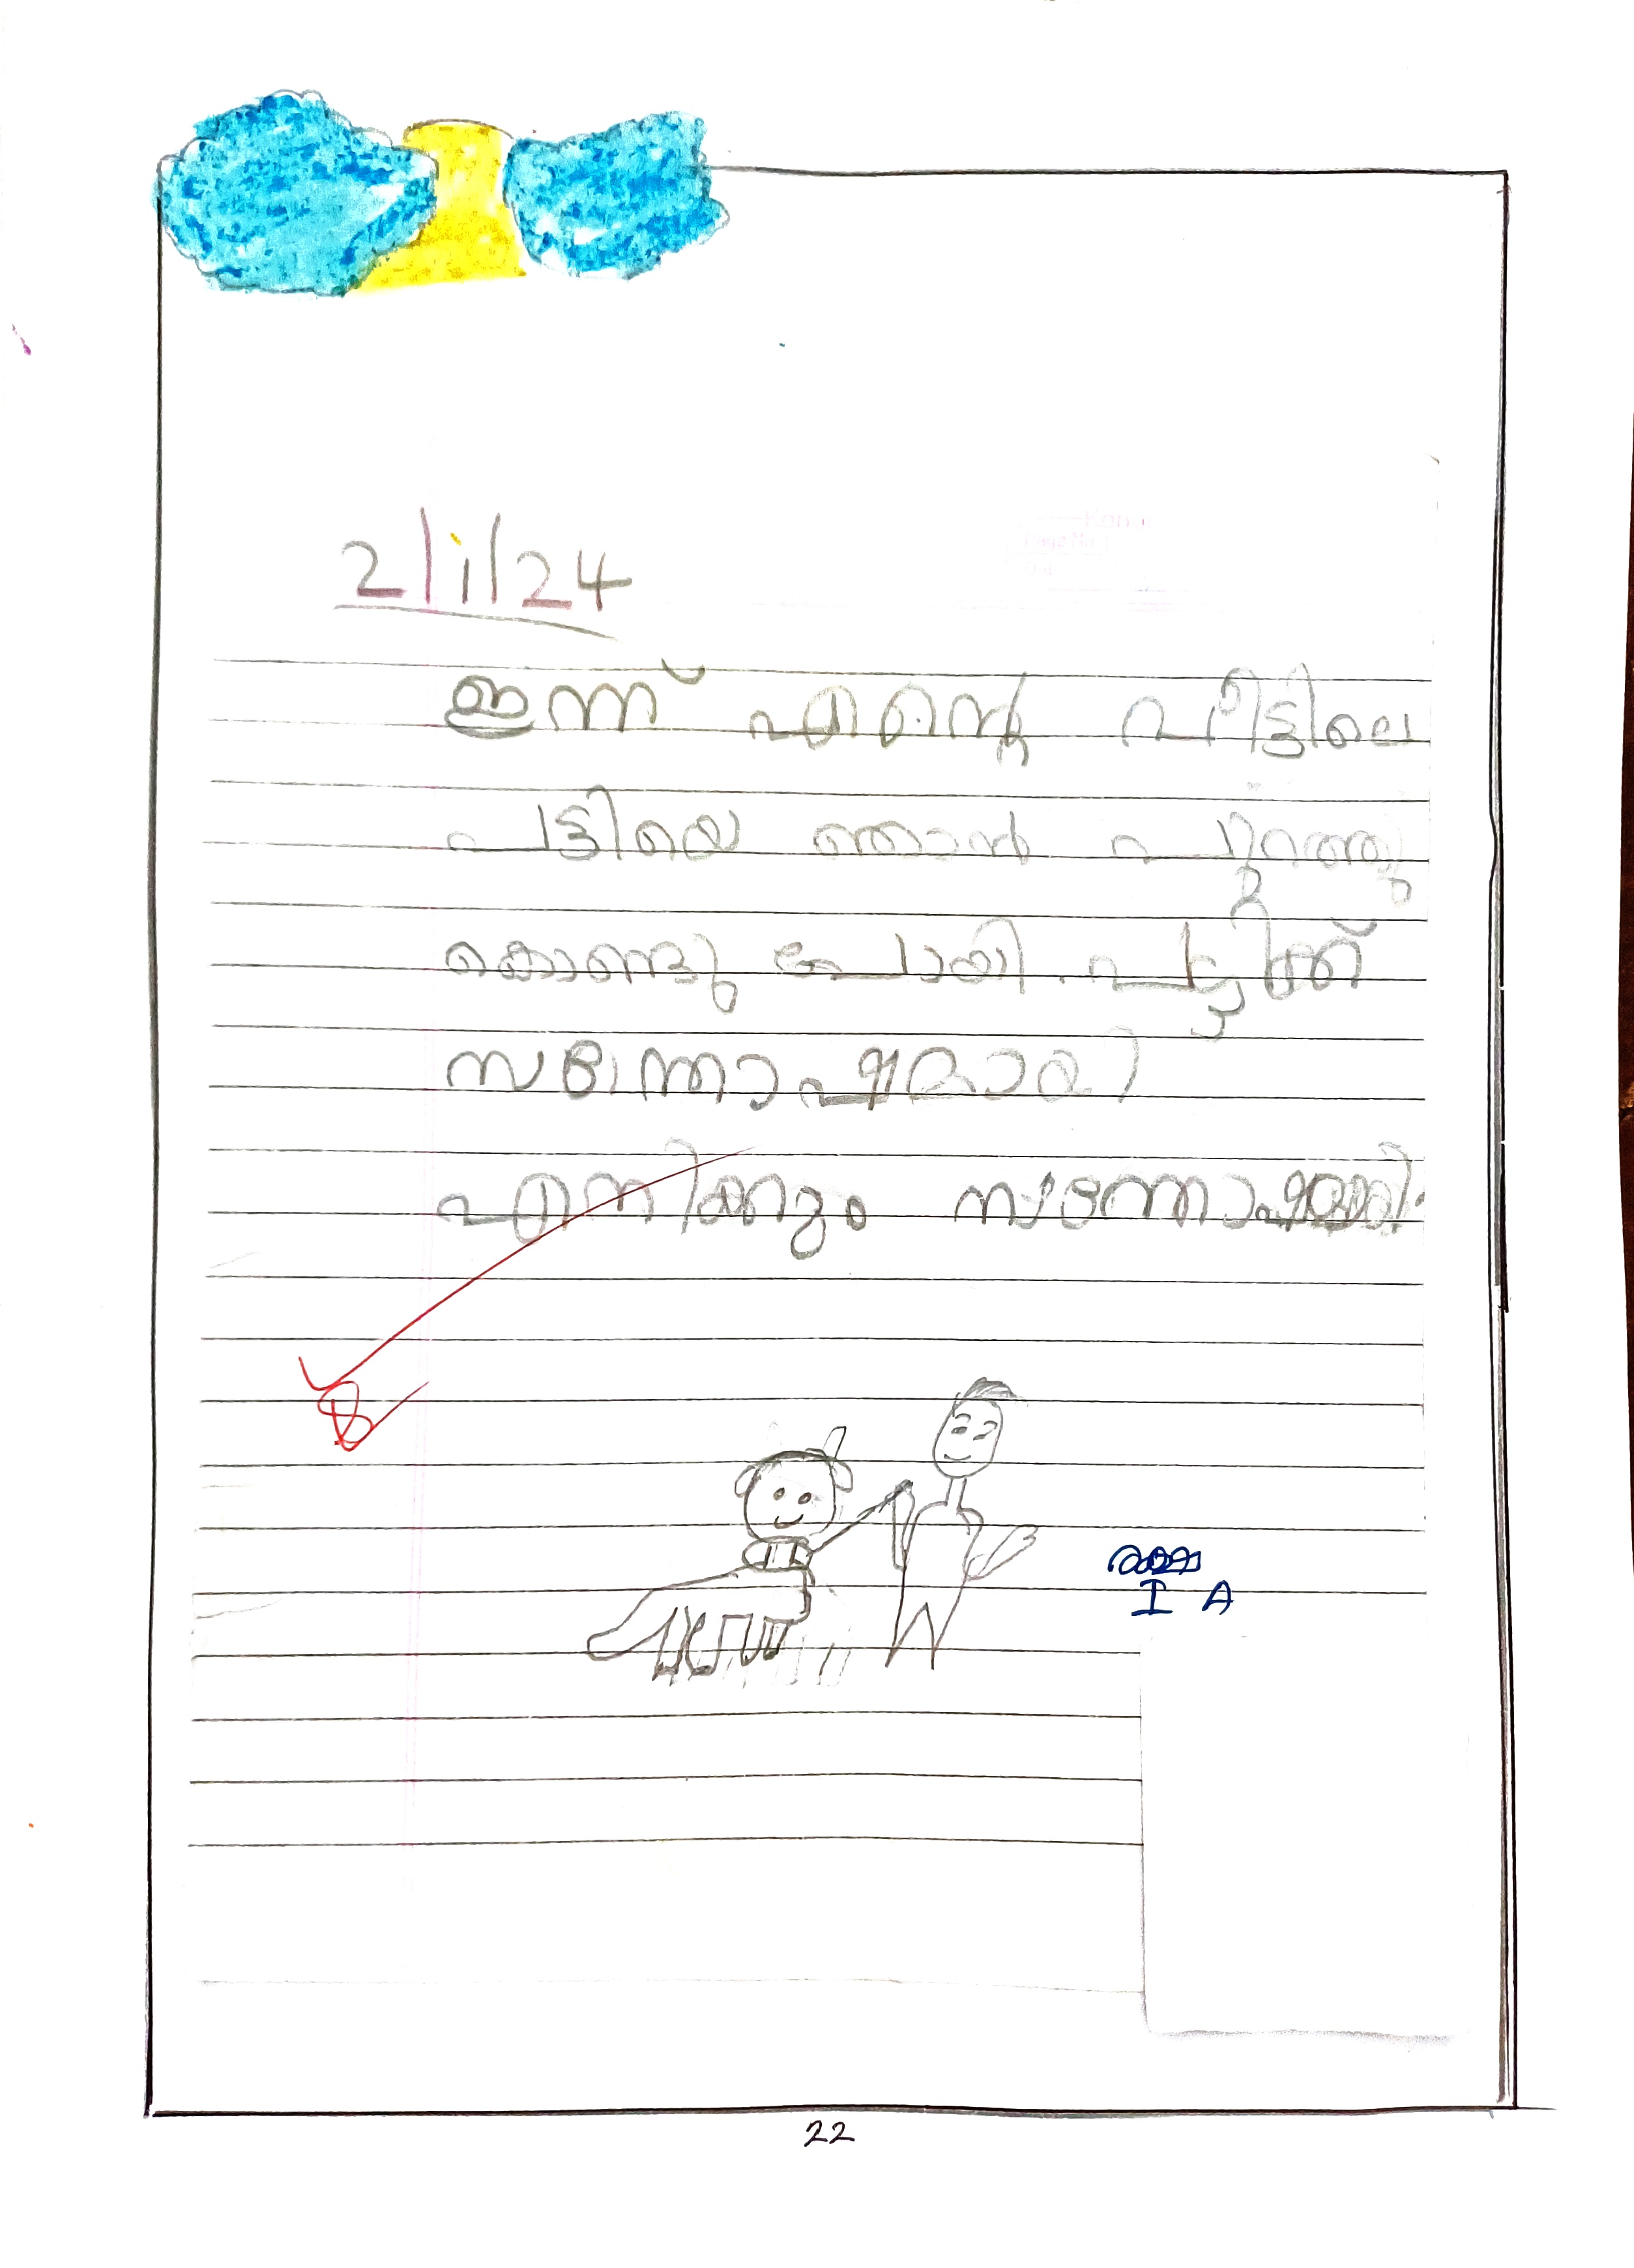 2/1/24
ഇന്ന് എന്റെ വീട്ടിലെ
പട്ടിയെ ഞാൻ പുറത്തു
കൊണ്ടു പോയി. പട്ടിക്ക്
സന്തോഷമായി
എനിക്കും സന്തോഷമായി.
I A
22